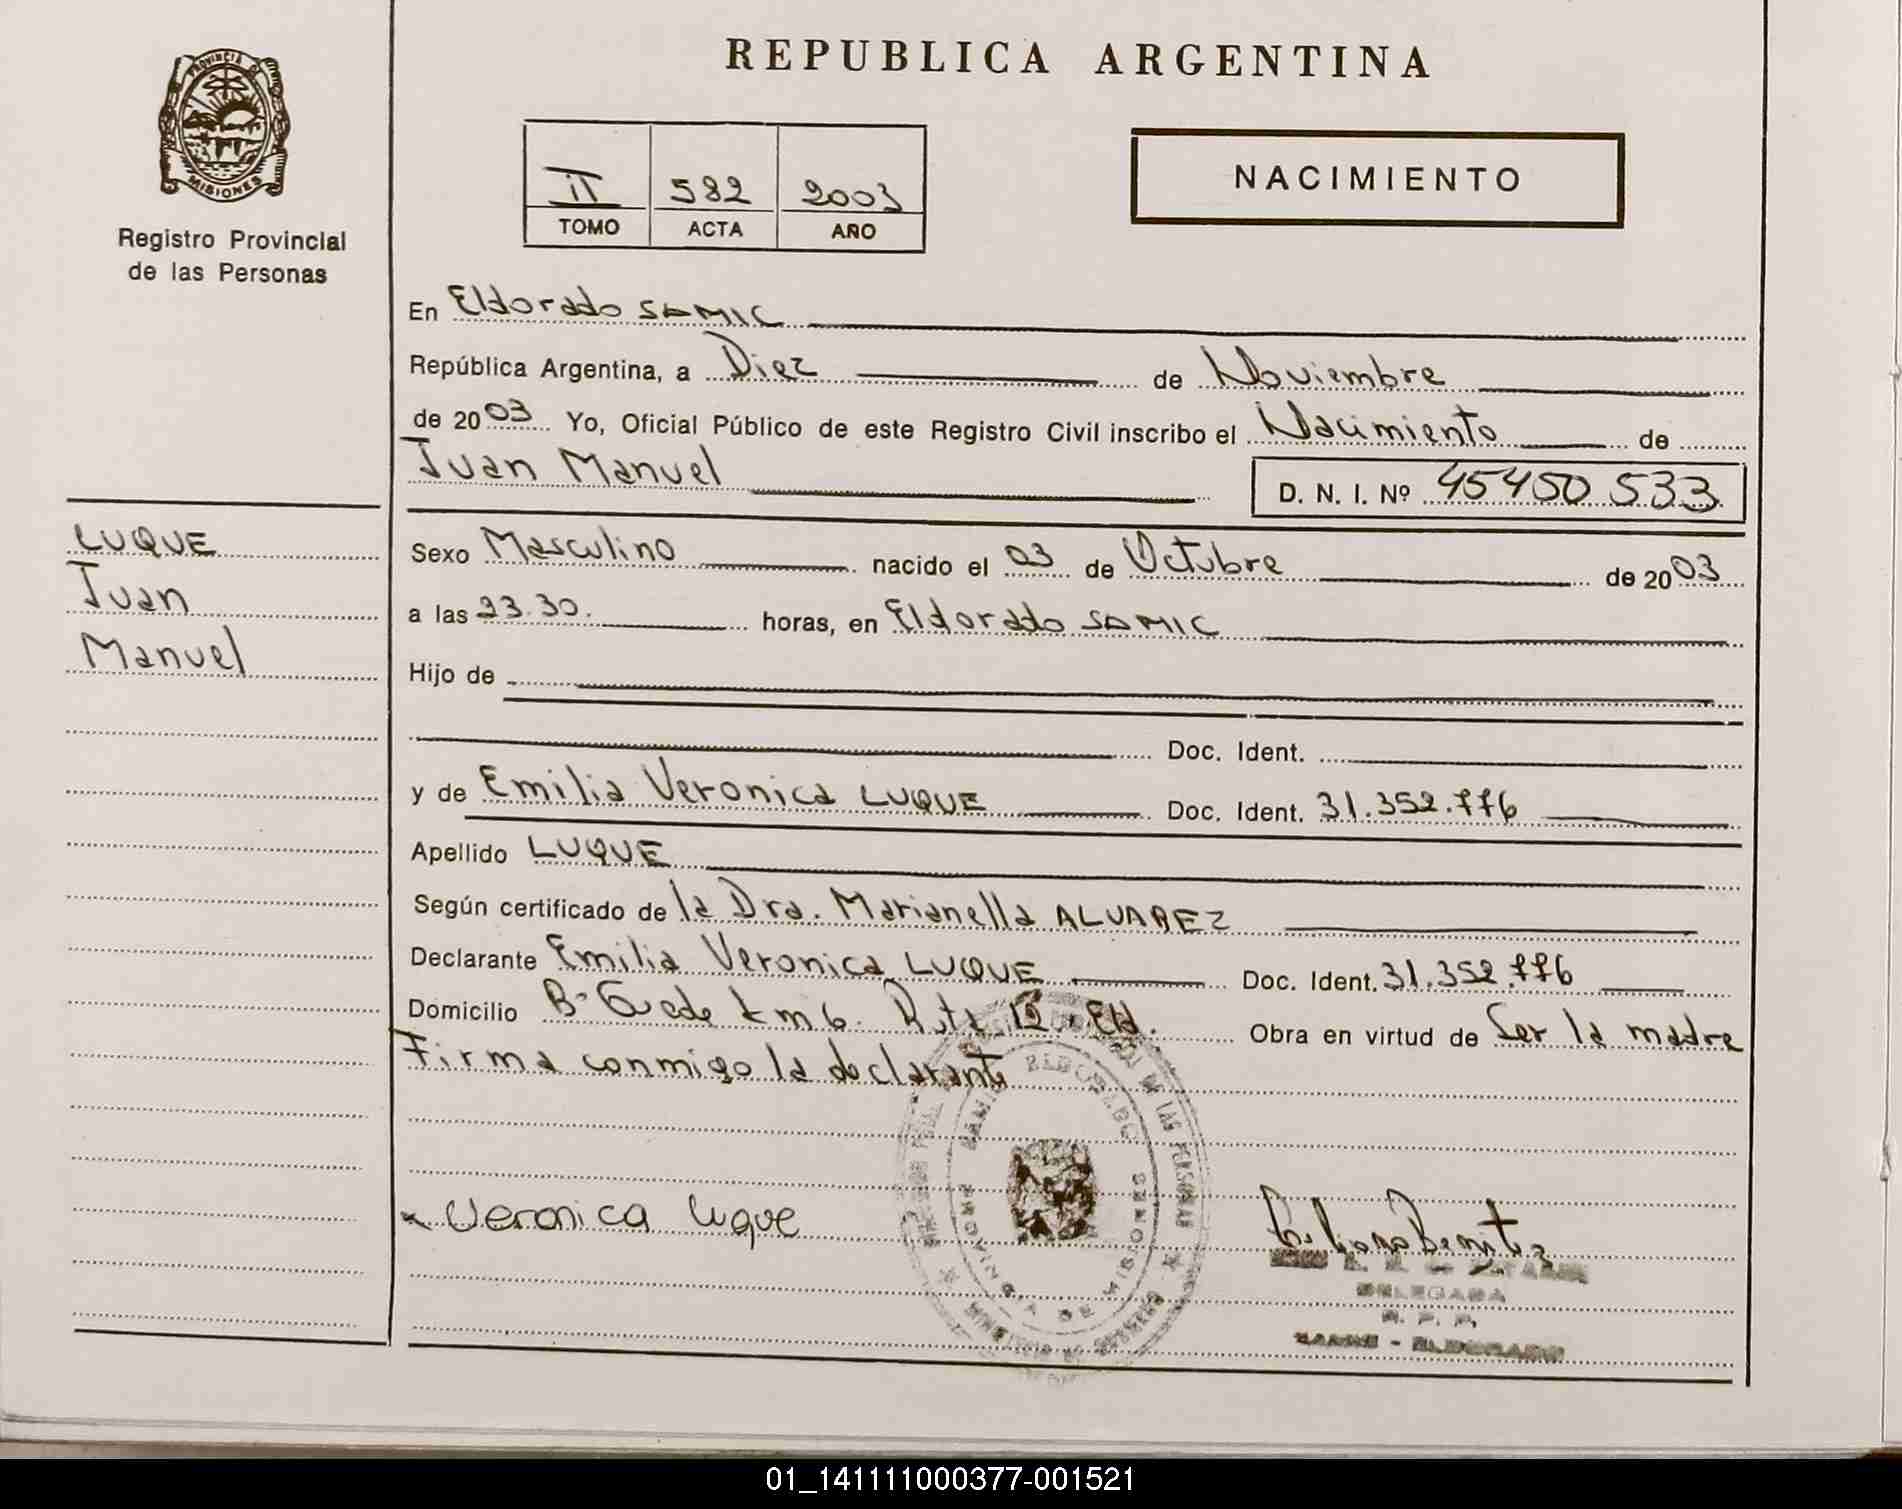 REPUBLICA ARGENTINA
PROVINCIA DE
MISIONES
Registro Provincial
de las Personas
II 582 2003
TOMO ACTA AÑO
NACIMIENTO
En Eldorado SAMIC
República Argentina, a Diez de Noviembre
de 2003 Yo, Oficial Público de este Registro Civil inscribo el Nacimiento de
Juan Manuel D. N. I. Nº 45450533
LUQUE
Juan
Manuel
Sexo Masculino nacido el 03 de Octubre de 2003
a las 23.30. horas, en Eldorado SAMIC
Hijo de
Doc. Ident.
y de Emilia Veronica LUQUE Doc. Ident. 31.352.776
Apellido LUQUE
Según certificado de la Dra. Marianella ALVAREZ
Declarante Emilia Veronica LUQUE Doc. Ident. 31.352.776
Domicilio Bº Guede km 6. Ruta 12. Eld. Obra en virtud de Ser la madre
Firma conmigo la declarante
DE LAS PERSONAS
ELDORADO
PROVINCIA DE MISIONES
Veronica Luque
Benitez
DELEGADA
R. P. P.
SAMIC - ELDORADO
01_141111000377-001521